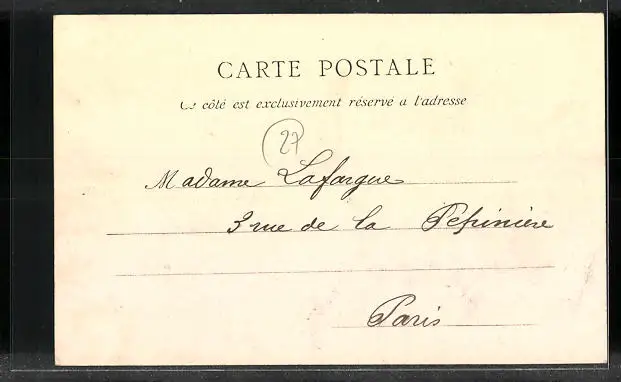 CARTE POSTALE
Ce côté est exclusivement réservé a l'adresse
27
Madame Lafargue
3 rue de la Pepinière
Paris